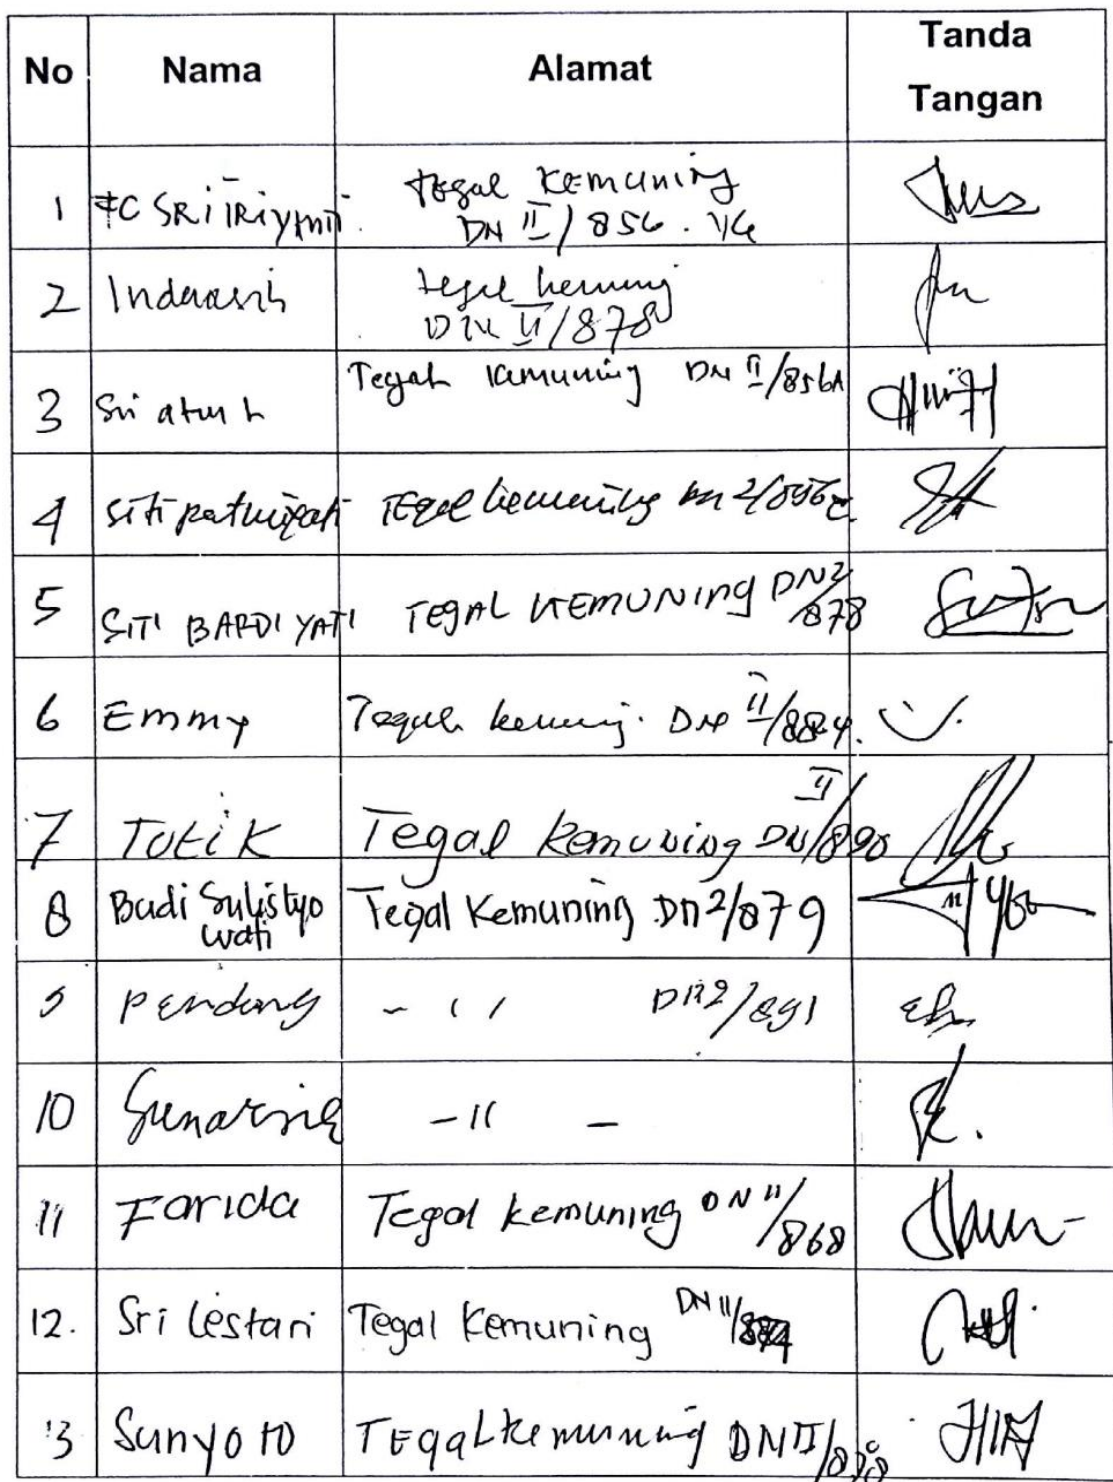 No Nama Alamat Tanda Tangan
1 FC SRI TRIYANTI. Tegal Kemuning
DN II / 856 . 1/4
2 Indarsih Tegal kemuning
DN II/878
3 Sri atun Tegal kemuning DN II/856A
4 Siti patmiyati Tegal kemuning DN 2/856
5 SITI BARDIYATI TEGAL KEMUNING DN2
/878
6 Emmy Tegal kemuning. DN II/884.
7 Totik Tegal kemuning DN II/890
8 Budi Sulistyo
wati Tegal Kemuning DN 2/879
9 Pendang - 11 DN2/891
10 Sunarsih - 11 -
11 Farida Tegal kemuning DN II/868
12. Sri Lestari Tegal Kemuning DN II/
13 Sunyoto TEgaLkemuning DN II/